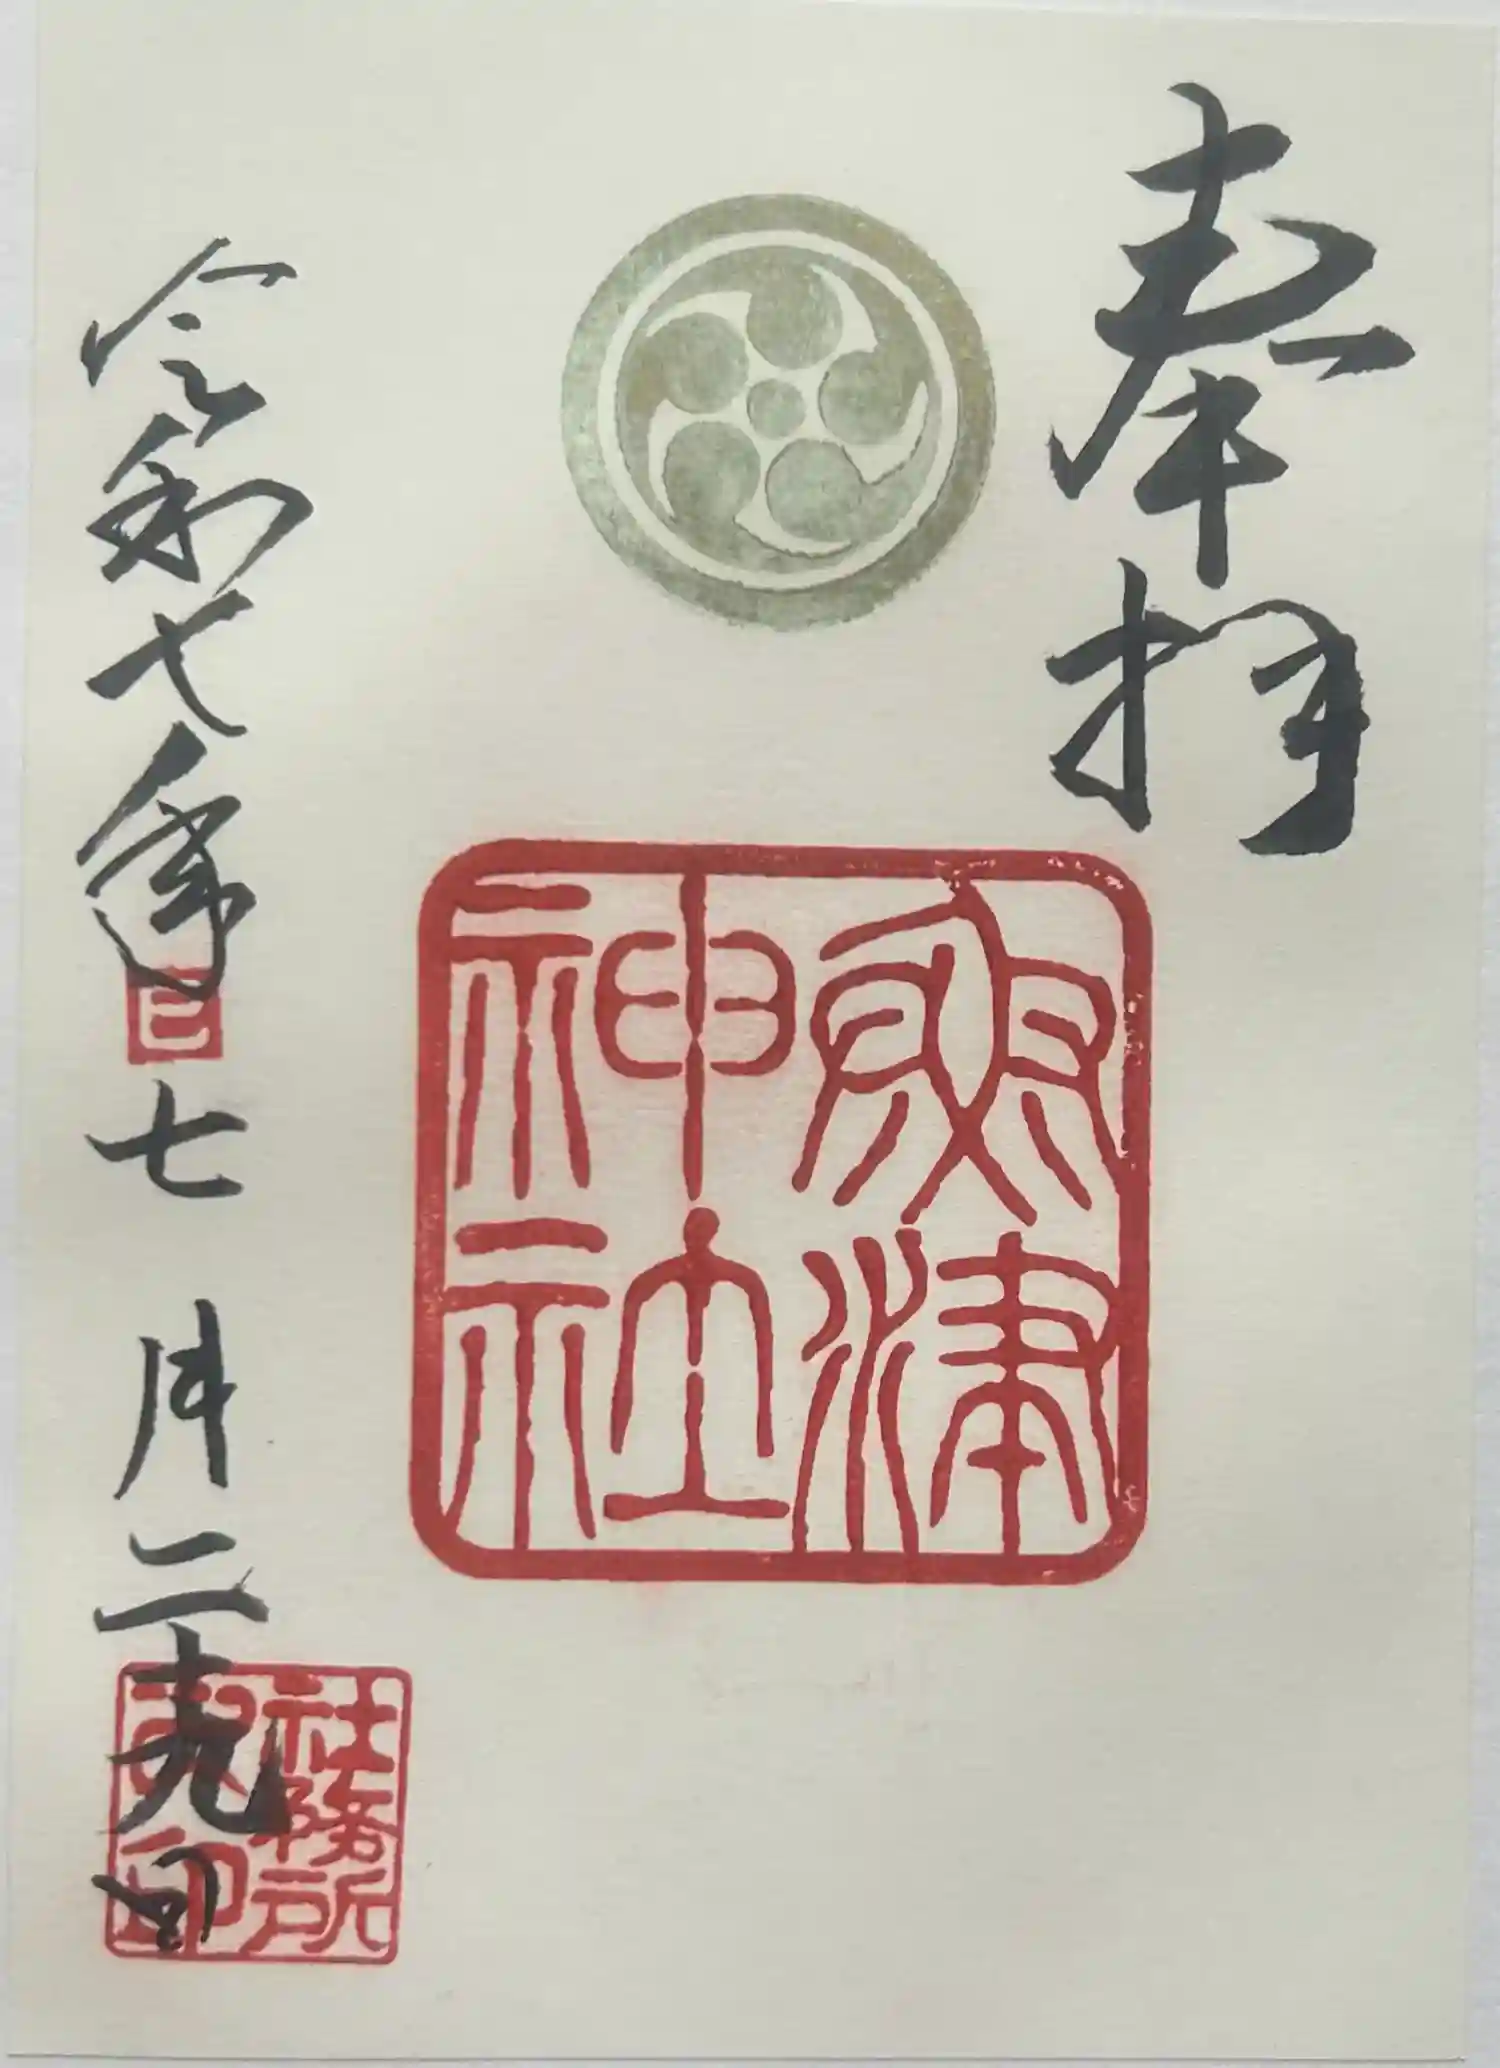 奉拝
津
神社
令和七年
巳
七月二十九日
社務所
印